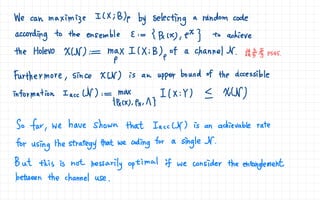 We can maximize I(X;B)ρ by selecting a random code
according to the ensemble ε := { Pₓ(x), ρˣ } to achieve
the Holevo χ(N) := max_ρ I(X;B)ρ of a channel N.
Furthermore, since χ(N) is an upper bound of the accessible
information Iacc(N) := max_{Pₓ(x), ρₓ, Λ} I(X:Y) ≤ χ(N)
So far, we have shown that Iacc(N) is an achievable rate
for using the strategy that we coding for a single N.
But this is not nessarily optimal if we consider the entanglement
between the channel use.